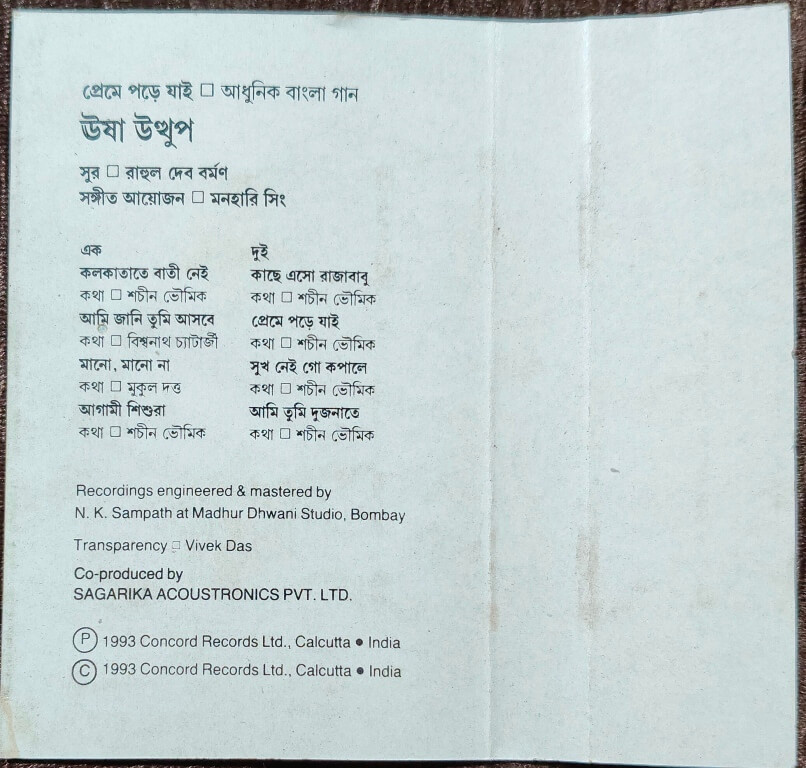 প্রেমে পড়ে যাই □ আধুনিক বাংলা গান
ঊষা উত্থুপ
সুর □ রাহুল দেব বর্মণ
সঙ্গীত আয়োজন □ মনহারি সিং
এক
কলকাতাতে বাতী নেই
কথা □ শচীন ভৌমিক
আমি জানি তুমি আসবে
কথা □ বিশ্বনাথ চ্যাটার্জী
মানো, মানো না
কথা □ মুকুল দত্ত
আগামী শিশুরা
কথা □ শচীন ভৌমিক
দুই
কাছে এসো রাজাবাবু
কথা □ শচীন ভৌমিক
প্রেমে পড়ে যাই
কথা □ শচীন ভৌমিক
সুখ নেই গো কপালে
কথা □ শচীন ভৌমিক
আমি তুমি দুজনাতে
কথা □ শচীন ভৌমিক
Recordings engineered & mastered by
N. K. Sampath at Madhur Dhwani Studio, Bombay
Transparency □ Vivek Das
Co-produced by
SAGARIKA ACOUSTRONICS PVT. LTD.
Ⓟ 1993 Concord Records Ltd., Calcutta ● India
Ⓒ 1993 Concord Records Ltd., Calcutta ● India